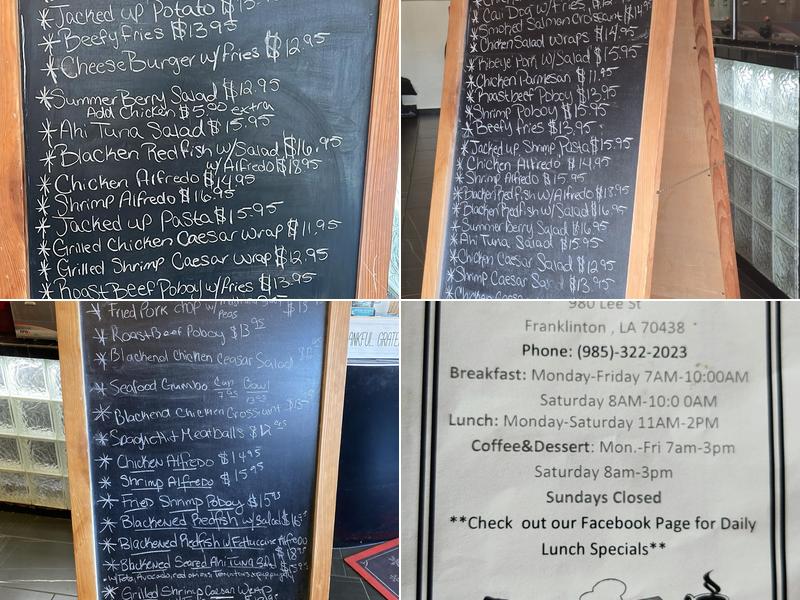 *Jacked up Potato $15.
*Beefy fries $13.95
*CheeseBurger w/fries $12.95
*Summer Berry Salad $12.95
Add Chicken $5.00 extra
*Ahi Tuna Salad $15.95
*Blacken Redfish w/Salad $16.95
w/Alfredo $18.95
*Chicken Alfredo $14.95
*Shrimp Alfredo $16.95
*Jacked up Pasta $15.95
*Grilled Chicken Caesar wrap $11.95
*Grilled Shrimp Caesar wrap $12.95
*Roast Beef Poboy w/fries $13.95
*Cali Dog w/Fries, $12.
*Smoked Salmon Croissant $14.95
*Chicken Salad Wraps $14.95
*Ribeye Pork w/Salad $15.95
*Chicken Parmesan $11.95
*Roastbeef Poboy $13.95
*Shrimp Poboy $15.95
*Beefy fries $13.95
*Jacked up Shrimp Pasta $15.95
*Chicken Alfredo $14.95
*Shrimp Alfredo $15.95
*Blacken Redfish w/Alfredo $18.95
*Blacken Redfish w/Salad $16.95
*Summer berry Salad $16.95
*Ahi Tuna Salad $15.95
*Chicken Caesar Salad $12.95
*Shrimp Caesar Sa $13.95
*Fried Pork chop w/
Peas
*RoastBeef Poboy $13.95
*Blackend Chicken Ceasar Salad
*Seafood Gumbo Cup Bowl
7.95 13.95
*Blackend Chicken Croissant $13.
*Spaghetti & Meatballs $12.95
*Chicken Alfredo $14.95
*Shrimp Alfredo $15.95
*Fried Shrimp Poboy $15.95
*Blackened Redfish w/Salad $16.
*Blackened Redfish w/Fettuccine Alfredo
$18.95
*Blackened Seared Ahi Tuna Sal
*Grilled Shrimp Caesar Wrap
ANKFUL GRATE
980 Lee St
Franklinton , LA 70438
Phone: (985)-322-2023
Breakfast: Monday-Friday 7AM-10:00AM
Saturday 8AM-10:0 0AM
Lunch: Monday-Saturday 11AM-2PM
Coffee&Dessert: Mon.-Fri 7am-3pm
Saturday 8am-3pm
Sundays Closed
**Check out our Facebook Page for Daily
Lunch Specials**